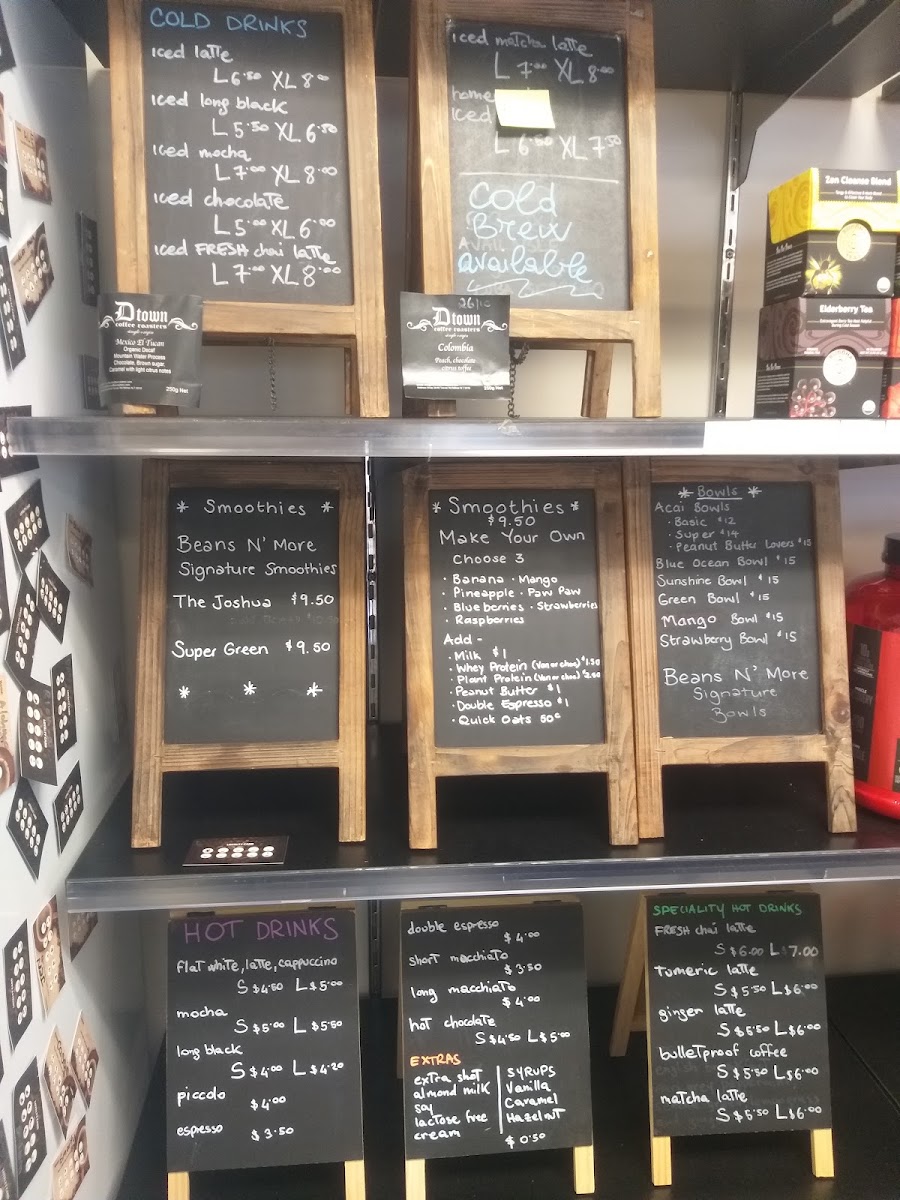 COLD DRINKS
iced latte
L 6.50 XL 8.00
iced long black
L 5.50 XL 6.50
iced mocha
L 7.00 XL 8.00
iced chocolate
L 5.00 XL 6.00
iced FRESH chai latte
L 7.00 XL 8.00
iced matcha latte
L 7.00 XL 8.00
home
iced
L 6.50 XL 7.50
Cold
Brew
available
Dtown
coffee roasters
single origin
Mexico El Tucan
Organic Decaf
Mountain Water Process
Chocolate, Brown sugar,
Caramel with light citrus notes
250g Net
Dtown
coffee roasters
single origin
Colombia
Peach, chocolate
citrus toffee
250g Net
Zen Cleanse Blend
Elderberry Tea
* Smoothies *
Beans N' More
Signature Smoothies
The Joshua $9.50
Super Green $9.50
* * *
* Smoothies *
$9.50
Make Your Own
Choose 3
· Banana · Mango
· Pineapple · Paw Paw
· Blueberries · Strawberries
· Raspberries
Add -
· Milk $1
· Whey Protein (Van or choc) $1.50
· Plant Protein (Van or choc) $2.50
· Peanut Butter $1
· Double Espresso $1
· Quick Oats 50c
* Bowls *
Acai Bowls
· Basic $12
· Super $14
· Peanut Butter Lovers $15
Blue Ocean Bowl $15
Sunshine Bowl $15
Green Bowl $15
Mango Bowl $15
Strawberry Bowl $15
Beans N' More
Signature
Bowls
HOT DRINKS
flat white, latte, cappuccino
S $4.50 L $5.00
mocha
S $5.00 L $5.50
long black
S $4.00 L $4.20
piccolo
$4.00
espresso
$3.50
double espresso
$4.00
short macchiato
$3.50
long macchiato
$4.00
hot chocolate
S $4.50 L $5.00
EXTRAS
extra shot
almond milk
soy
lactose free
cream
SYRUPS
Vanilla
Caramel
Hazelnut
$0.50
SPECIALITY HOT DRINKS
FRESH chai latte
S $6.00 L $7.00
tumeric latte
S $5.50 L $6.00
ginger latte
S $5.50 L $6.00
bulletproof coffee
S $5.50 L $6.00
matcha latte
S $5.50 L $6.00